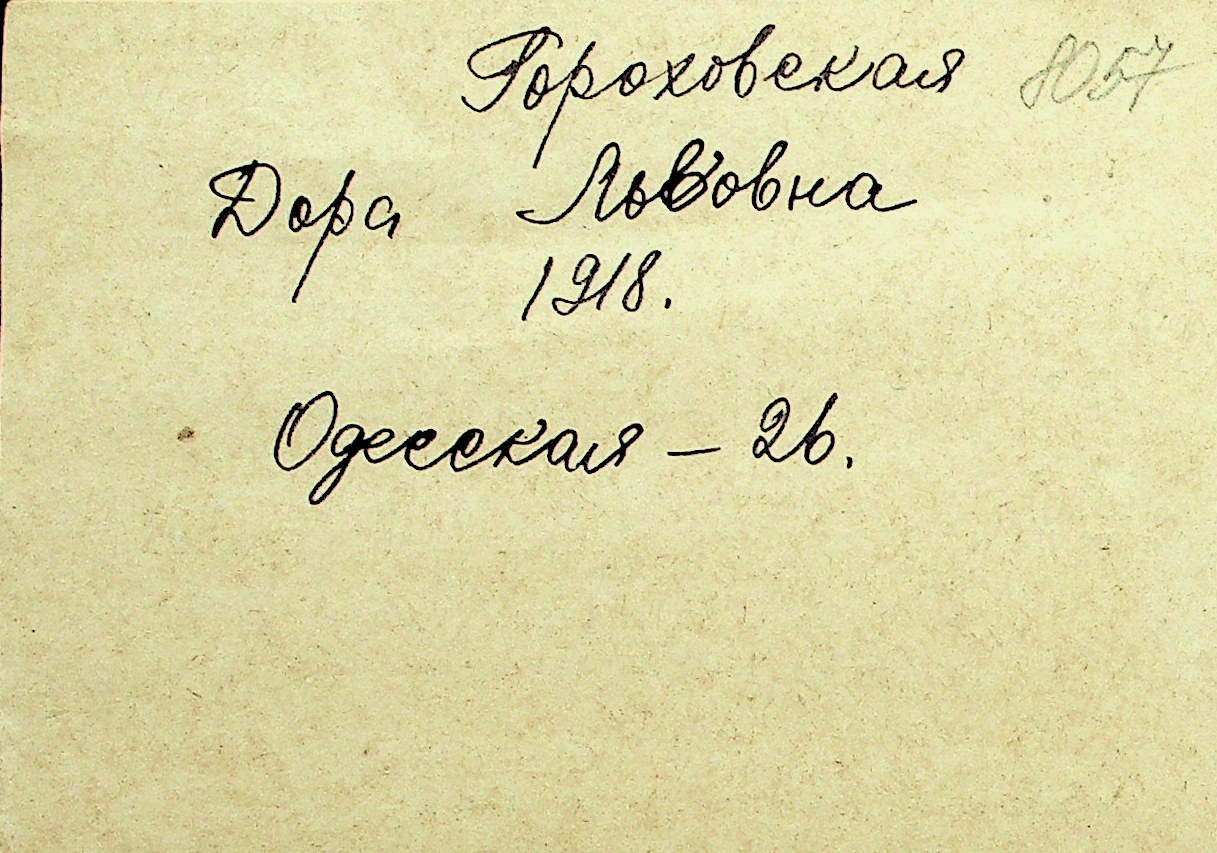 Гороховская 8057
Дора Львовна
1918.
Одесская – 26.